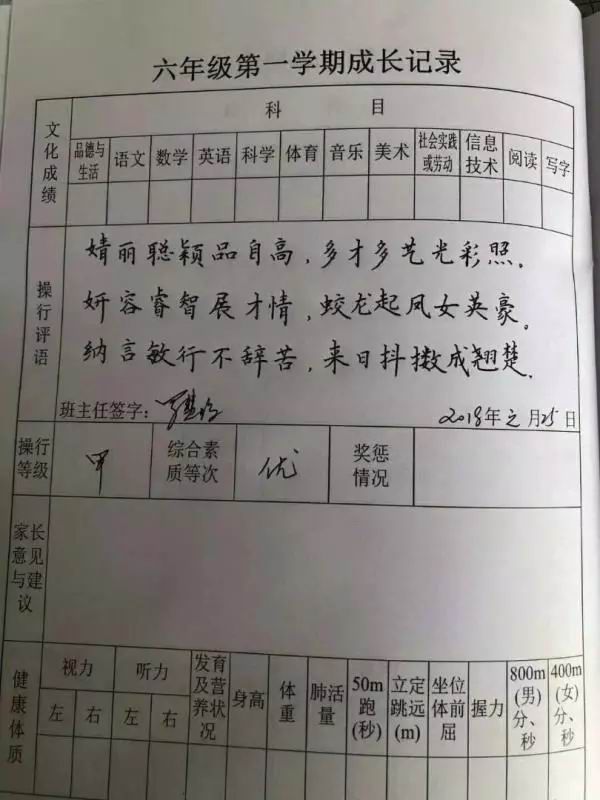 六年级第一学期成长记录
文化成绩
科 目
品德与生活 语文 数学 英语 科学 体育 音乐 美术 社会实践或劳动 信息技术 阅读 写字
操行评语
婧丽聪颖品自高，多才多艺光彩照。
妍容睿智展才情，蛟龙起凤女英豪。
纳言敏行不辞苦，来日抖擞成翘楚.
班主任签字：
2018年元月25日
操行等级 甲 综合素质等次 优 奖惩情况
家长意见与建议
健康体质
视力 听力 发育及营养状况 身高 体重 肺活量 50m跑(秒) 立定跳远(m) 坐位体前屈 握力 800m(男)分、秒 400m(女)分、秒
左 右 左 右